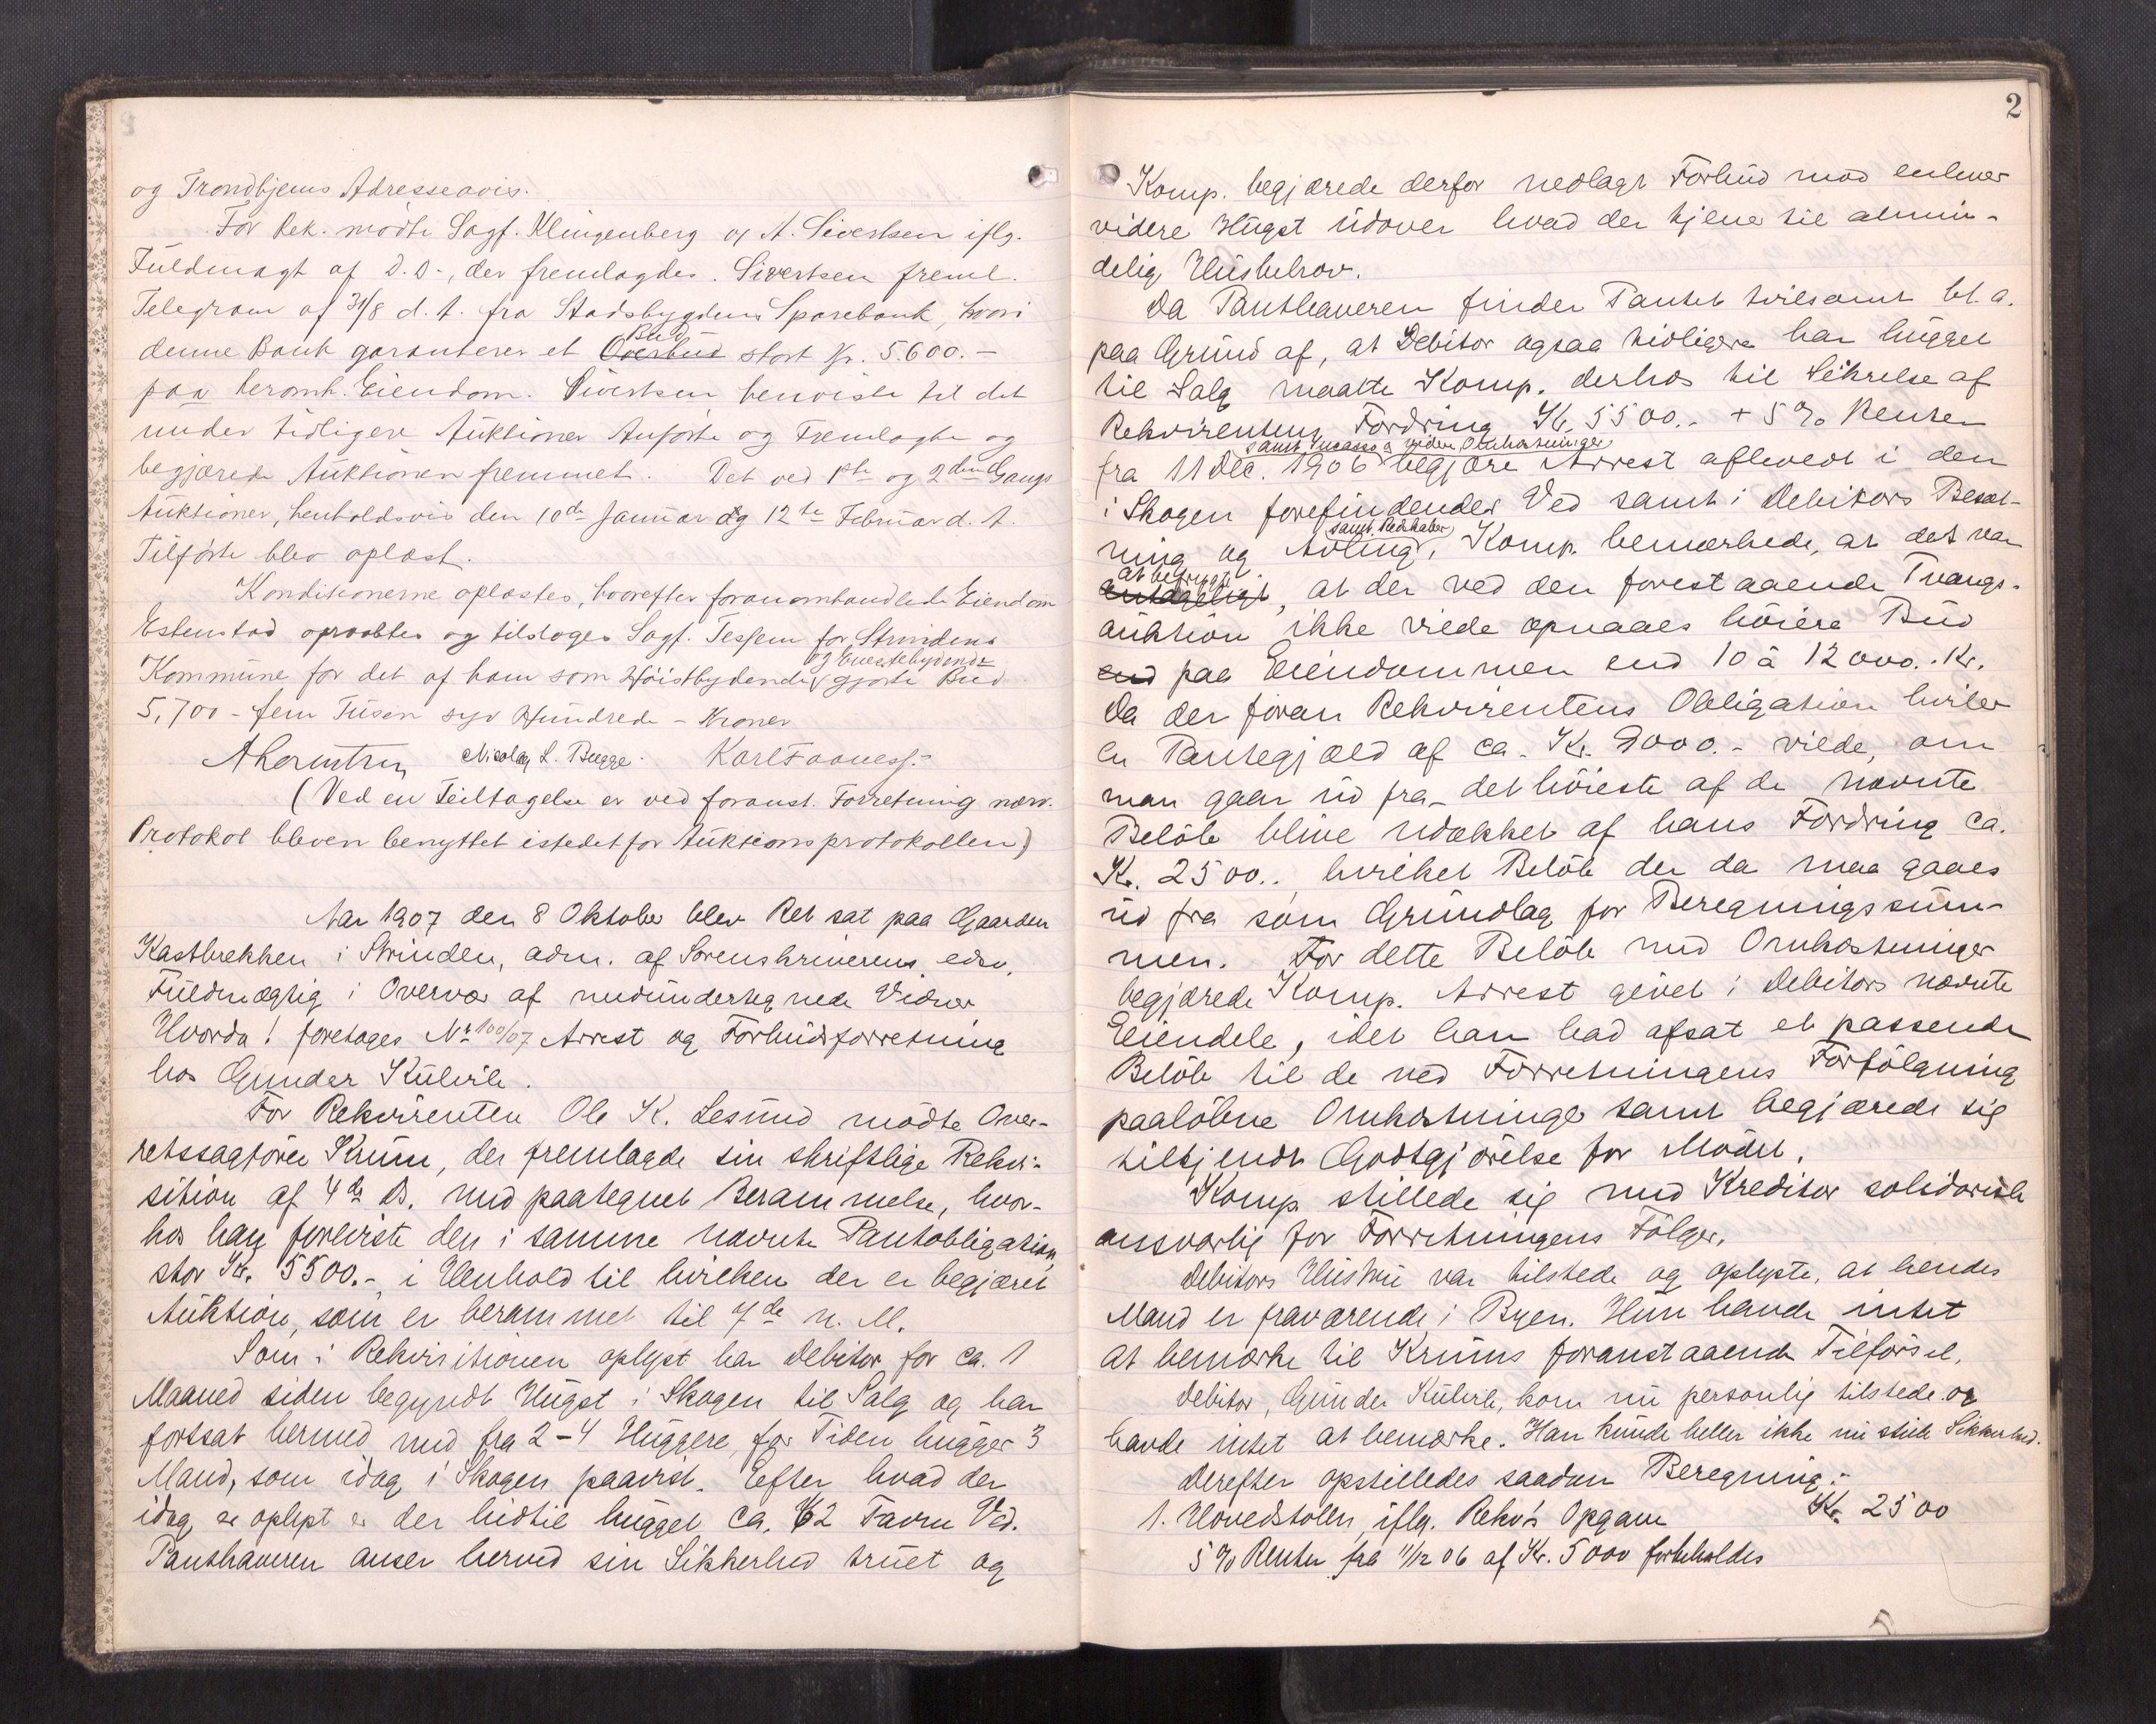 og Trondhjems Adresseavis.
For Rek. mødte Sagf. Klingenberg og A. Sivertsen iflg.
Fuldmagt af D.D., der fremlagdes. Sivertsen freml.
Telegram af 31/8 d. A. fra Stadsbygdens Sparebank, hvori
denne Bank garanterer et Overbud Bud stort Kr. 5600.-
paa heromh. Eiendom. Sivertsen henviste til det
under tidligere Auktioner Anførte og Fremlagte og
begjærede Auktionen fremmet. Det ved 1ste og 2den Gangs
Auktioner, henholdsvis den 10de Januar og 12te Februar d. A.
Tilførte blev oplæst.
Konditionerne oplæstes, hvorefter foranomhandlede Eiendom
Estenstad opraabtes og tilsloges Sagf. Tessem for Strindens
Kommune for det af ham som Høistbydende og Enestebydende gjorte Bud
5,700 - fem Tusen syv Hundrede - Kroner
Nicolay L. Bugge. Karl Faaness.
(Ved en Feiltagelse er ved foranst. Forretning nærv.
Protokol bleven benyttet istedetfor Auktionsprotokollen)
Aar 1907 den 8 Oktober blev Ret sat paa Gaarden
Kastbrekken i Strinden, adm. af Sorenskriverens edsv.
Fuldmægtig i Overvær af medundertegnede Vidner
Hvorda! foretoges No 100/07 Arrest og Forbudsforretning
hos Gunder Kulvik.
For Rekvirenten Ole K. Lesund mødte Over-
retssagfører Krüm, der fremlagde sin skriftlige Rekvi-
sition af 4de ds. med paategnet Berammelse, hvor-
hos han foreviste den i samme nævnte Pantobligation
stor Kr. 5500.-, i Henhold til hvilken der er begjæret
Auktion, som er berammet til 7de n. M.
Som i Rekvisitionen oplyst har Debitor for ca. 1
Maaned siden begyndt Hugst i Skogen til Salg og har
fortsat hermed med fra 2-4 Huggere, for Tiden hugger 3
Mand, som idag i Skogen paavist. Efter hvad der
idag er oplyst er der hidtil hugget ca. 62 Favne Ved.
Panthaveren anser herved sin Sikkerhed truet og
2
Komp. begjærede derfor nedlagt Forbud mod enhver
videre Hugst udover hvad der tjener til almin-
delig Husbehov.
Da Panthaveren finder Pantet tvilsomt bl. a.
paa Grund af, at Debitor ogsaa tidligere har hugget
til Salg maatte Komp. derhos til Sikrelse af
Rekvirentens Fordring Kr. 5500.- + 5% Renter
samt Incasso & videre Omkostninger
fra 11 Dec. 1906 begjære Arrest aflevert i den
i Skogen forefindendes Ved samt i Debitors Besæt-
samt Redskaber
ning og Avling. Komp. bemærkede, at det var
at befrygte
antageligt, at der ved den forestaaende Tvangs-
auktion ikke vilde opnaaes høiere Bud
end paa Eiendommen end 10 à 12000.- Kr.
Da der foran Rekvirentens Obligation hviler
en Pantegjæld af ca. Kr. 9000.- vilde, om
man gaar ud fra det høieste af de nævnte
Beløb blive udækket af hans Fordring ca.
Kr. 2500.-, hvilket Beløb der da maa gaaes
ud fra som Grundlag for Beregningssum-
men. For dette Beløb med Omkostninger
begjærede Komp. Arrest givet i Debitors nævnte
Eiendele, idet han bad afsat et passende
Beløb til de ved Forretningens Forfølgning
paaløbne Omkostninger samt begjærede sig
tilkjendt Godtgjørelse for Mødet.
Komp. stillede sig med Kreditor solidarisk
ansvarlig for Forretningens Følger.
Debitors Hustru var tilstede og oplyste, at hendes
Mand er fraværende i Byen. Hun havde intet
at bemærke til Krüms foranstaaende Tilførsel.
Debitor, Gunder Kulvik, kom nu personlig tilstede og
havde intet at bemærke. Han kunde heller ikke nu stille Sikkerhed.
Derefter opstilledes saadan Beregning:
1. Hovedstolen, iflg. Rekv's Opgave Kr. 2500
5% Renter fra 11/12 06 af Kr. 5000 forbeholdes